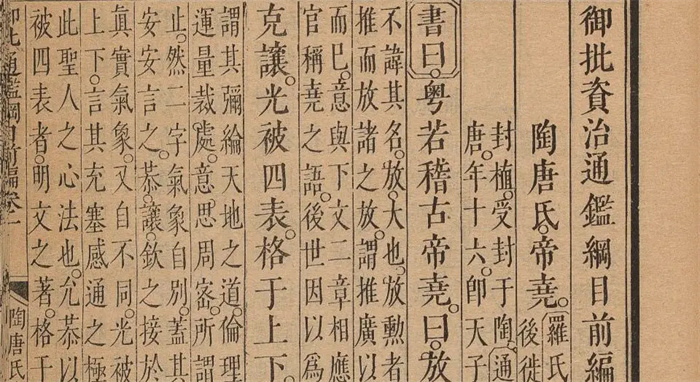 御批資治通鑑綱目前編
陶唐氏帝堯。羅氏
後徙
封植。受封于陶。通
唐。年十六。卽天子
書曰。粤若稽古帝堯。曰。放
不諱其名。放大也。放勲者
推而放諸之放。謂推廣以
而巳。意與下文二章相應
官稱堯之語。後世因以爲
克讓。光被四表。格于上下。
謂其彌綸天地之道。倫理
運量裁處。意思周密。所謂
止。然二字氣象自別。蓋其
安安言之。恭讓。欽之接於
眞實氣象。又自不同。光被
上下。言其充塞感通之極
此聖人之心法也。允恭以
被四表者。明文之著。格于
御批通鑑綱目前編卷一
陶唐氏